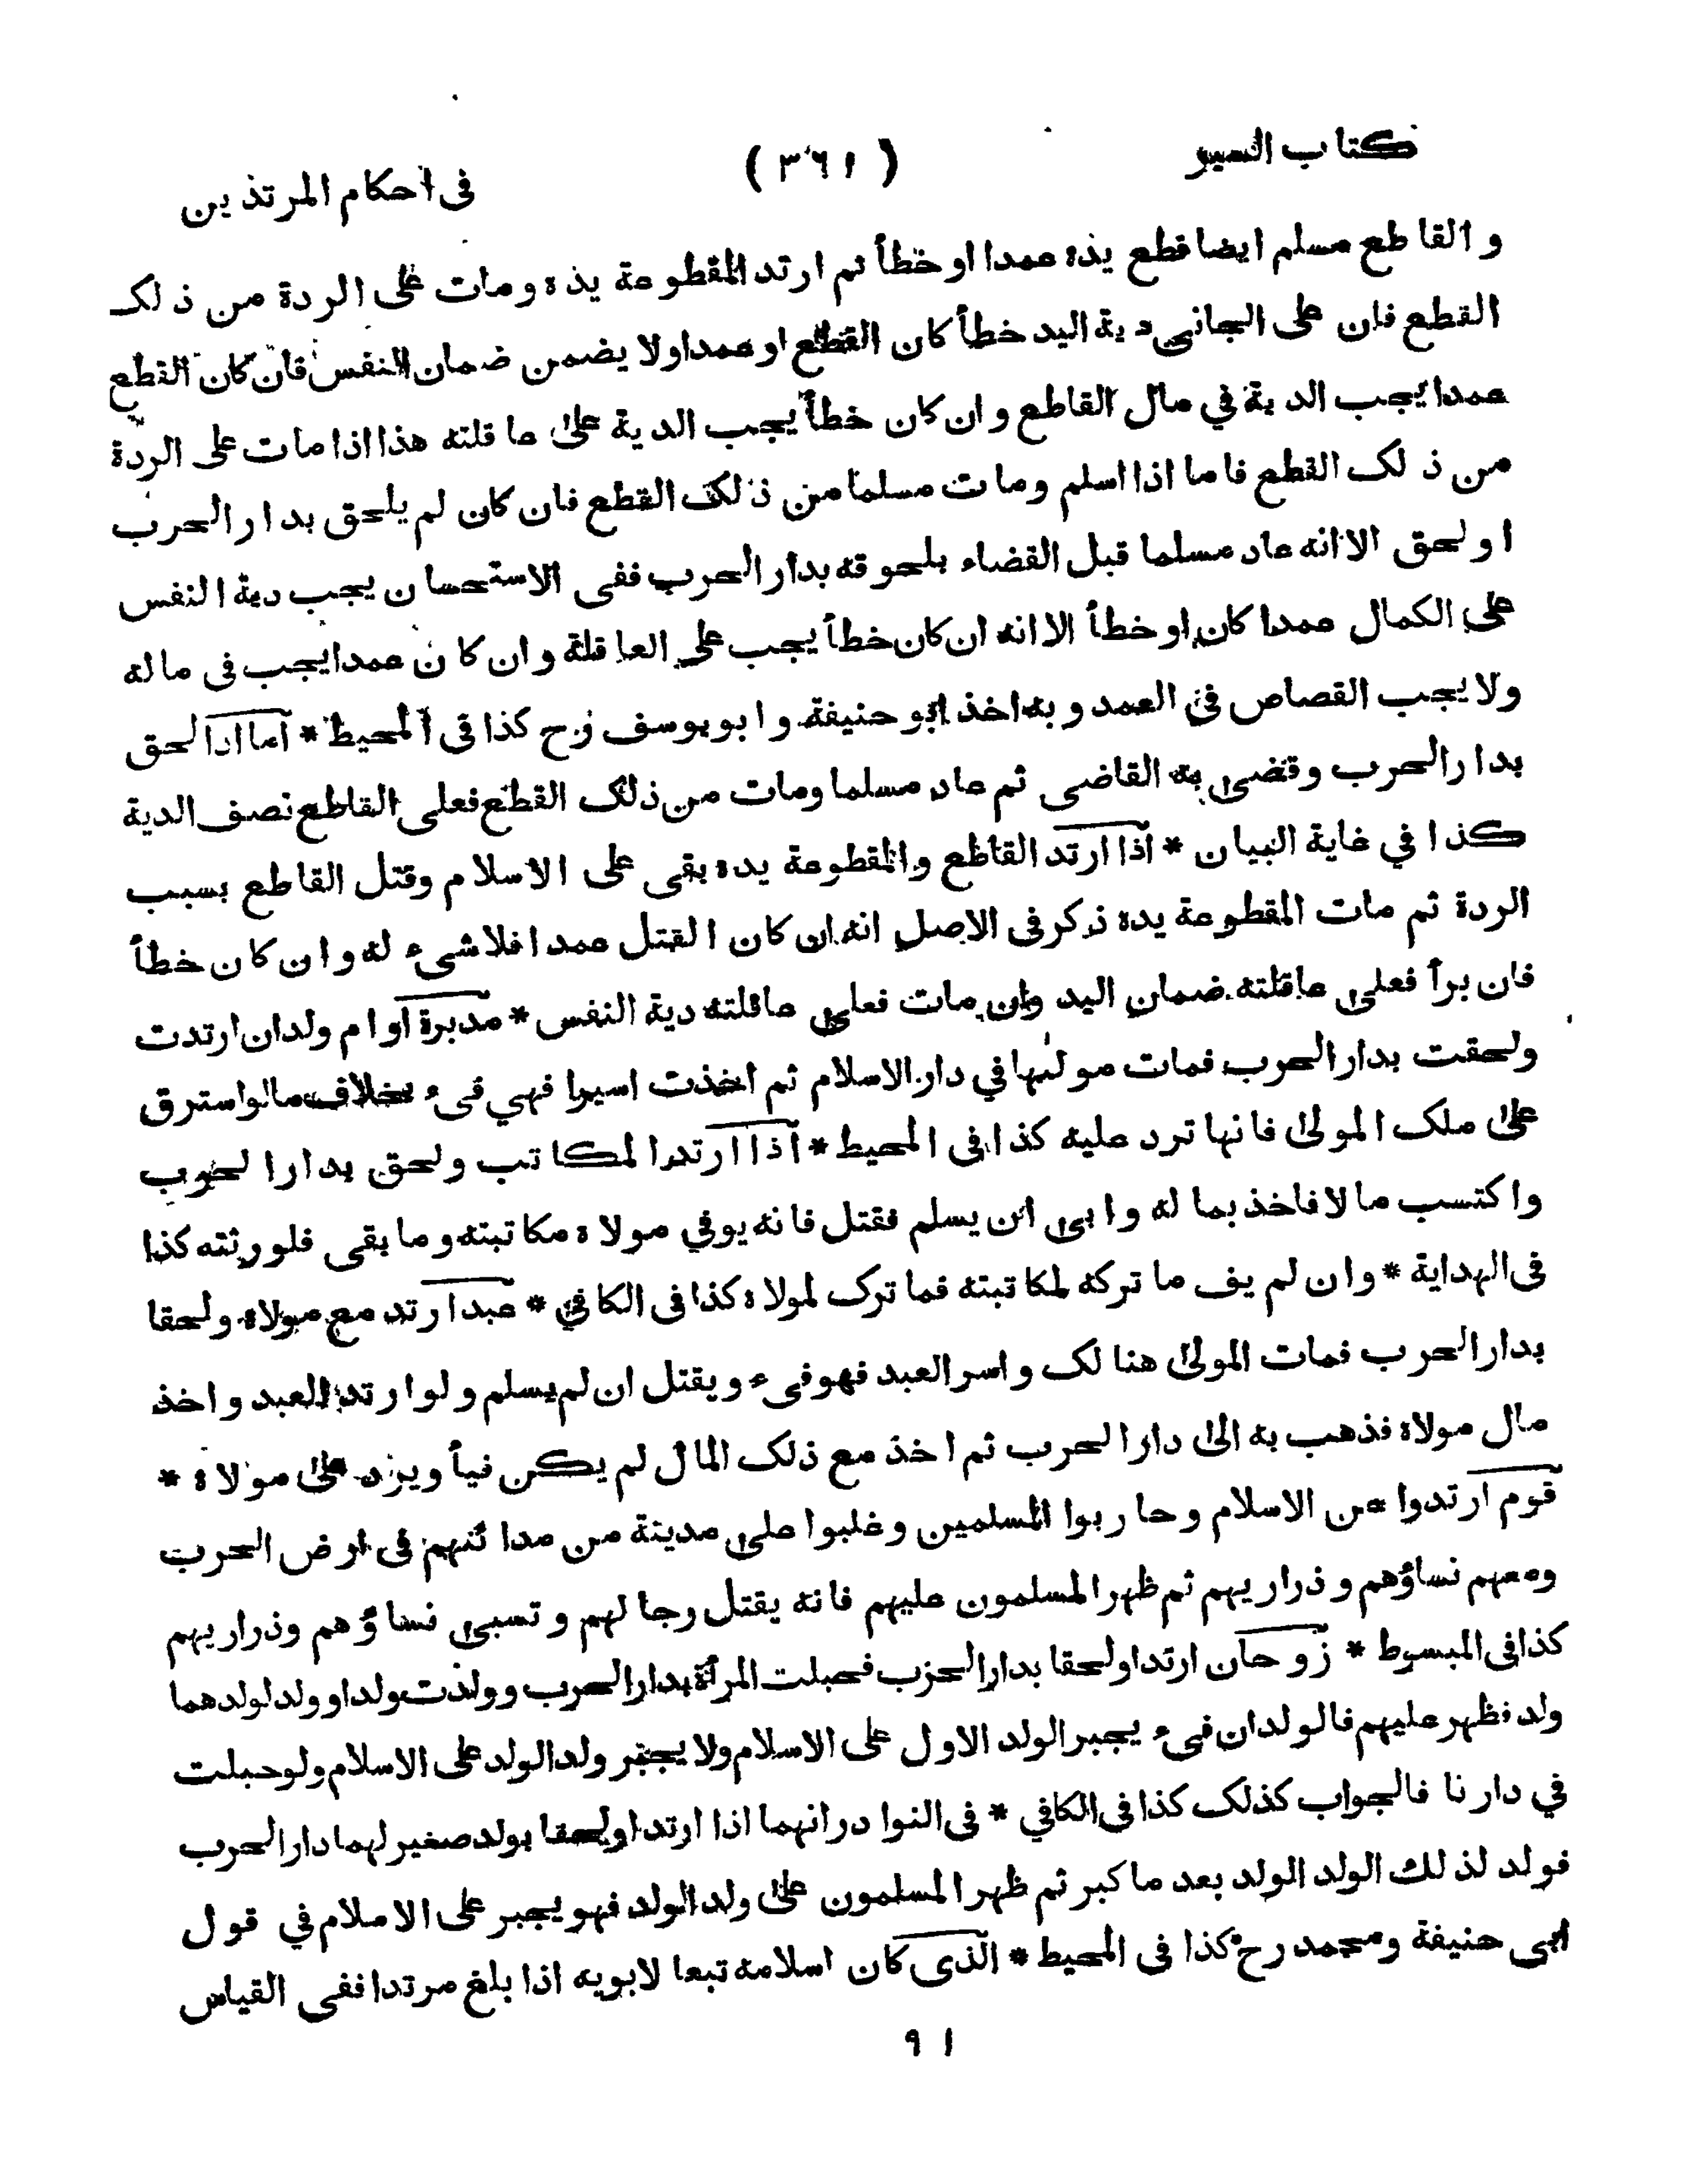 كتاب السير
( ٣٦١ )
فى احكام المرتدين
و القاطع مسلم ايضا قطع يده عمدا او خطأ ثم ارتد المقطوعة يده ومات على الردة من ذلك
القطع فان على الجانى دية اليد خطأ كان القطع او عمدا ولا يضمن ضمان النفس فان كان القطع
عمدا يجب الدية في مال القاطع و ان كان خطأ يجب الدية على عاقلته هذا اذا مات على الردة
من ذلك القطع فاما اذا اسلم ومات مسلما من ذلك القطع فان كان لم يلحق بدار الحرب
او لحق الا انه عاد مسلما قبل القضاء بلحوقه بدار الحرب ففى الاستحسان يجب دية النفس
على الكمال عمدا كان او خطأ الا انه ان كان خطأ يجب على العاقلة و ان كان عمدا يجب فى ماله
ولا يجب القصاص في العمد و به اخذ ابو حنيفة و ابو يوسف رح كذا فى المحيط * اما اذا لحق
بدار الحرب وقضى به القاضى ثم عاد مسلما ومات من ذلك القطع فعلى القاطع نصف الدية
كذا في غاية البيان * اذا ارتد القاطع والمقطوعة يده بقى على الاسلام وقتل القاطع بسبب
الردة ثم مات المقطوعة يده ذكر فى الاصل انه ان كان القتل عمدا فلا شىء له و ان كان خطأ
فان برأ فعلى عاقلته ضمان اليد وان مات فعلى عاقلته دية النفس * مدبرة او ام ولد ان ارتدت
ولحقت بدار الحرب فمات مولٰىها في دار الاسلام ثم اخذت اسيرا فهي فىء بخلاف ما لو استرق
على ملك المولى فانها ترد عليه كذا فى المحيط * اذا ارتد المكاتب ولحق بدار الحرب
واكتسب مالا فاخذ بماله و ابى ان يسلم فقتل فانه يوفي مولاه مكاتبته وما بقى فلورثته كذا
فى الهداية * وان لم يف ما تركه لمكاتبته فما ترك لمولاه كذا فى الكافي * عبد ارتد مع مولاه ولحقا
بدار الحرب فمات المولى هنالك و اسر العبد فهو فىء ويقتل ان لم يسلم و لو ارتد العبد و اخذ
مال مولاه فذهب به الى دار الحرب ثم اخذ مع ذلك المال لم يكن فيأ ويرد على مولاه *
قوم ارتدوا عن الاسلام و حاربوا المسلمين وغلبوا على مدينة من مدائنهم فى ارض الحرب
ومعهم نساؤهم و ذراريهم ثم ظهر المسلمون عليهم فانه يقتل رجالهم و تسبى نساؤهم وذراريهم
كذا فى المبسوط * زوجان ارتدا ولحقا بدار الحرب فحبلت المرأة بدار الحرب وولدت ولدا وولد لولدهما
ولد فظهر عليهم فالولدان فىء يجبر الولد الاول على الاسلام ولا يجبر ولد الولد على الاسلام ولو حبلت
في دارنا فالجواب كذلك كذا فى الكافي * فى النوادر انهما اذا ارتدا ولحقا بولد صغير لهما دار الحرب
فولد لذلك الولد الولد بعد ما كبر ثم ظهر المسلمون على ولد الولد فهو يجبر على الاسلام في قول
ابى حنيفة ومحمد رح كذا فى المحيط * الذى كان اسلامه تبعا لابويه اذا بلغ مرتدا ففى القياس
٩١